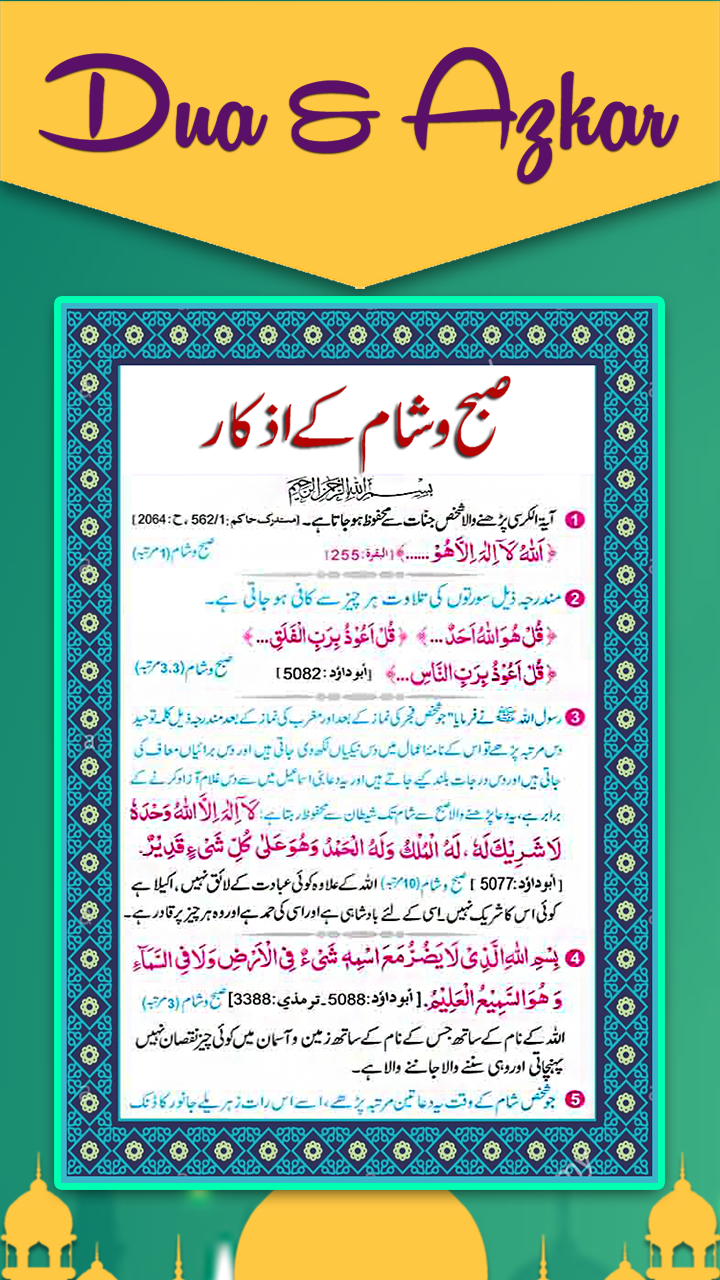 Dua & Azkar
صبح و شام کے اذکار
بسم الله الرحمن الرحيم
1 آیۃ الکرسی پڑھنے والا شخص جنات سے محفوظ ہو جاتا ہے۔ [مستدرک حاکم: 562/1، ح: 2064]
﴿اَللّٰهُ لَآ اِلٰهَ اِلَّا هُوَ ......﴾ [البقرة: 255] صبح و شام (1 مرتبہ)
2 مندرجہ ذیل سورتوں کی تلاوت ہر چیز سے کافی ہو جاتی ہے۔
﴿قُلْ هُوَ اللّٰهُ اَحَدٌ...﴾ ﴿قُلْ اَعُوْذُ بِرَبِّ الْفَلَقِ...﴾
﴿قُلْ اَعُوْذُ بِرَبِّ النَّاسِ...﴾ [ابو داؤد: 5082] صبح و شام (3،3 مرتبہ)
3 رسول اللہ ﷺ نے فرمایا "جو شخص فجر کی نماز کے بعد اور مغرب کی نماز کے بعد مندرجہ ذیل کلمہ توحید
دس مرتبہ پڑھے تو اس کے نامۂ اعمال میں دس نیکیاں لکھ دی جاتی ہیں اور دس برائیاں معاف کی
جاتی ہیں اور دس درجات بلند کیے جاتے ہیں اور یہ دعا بنی اسماعیل میں سے دس غلام آزاد کرنے کے
برابر ہے، یہ دعا پڑھنے والا صبح سے شام تک شیطان سے محفوظ رہتا ہے: لَآ اِلٰهَ اِلَّا اللّٰهُ وَحْدَهٗ
لَا شَرِيْكَ لَهٗ، لَهُ الْمُلْكُ وَلَهُ الْحَمْدُ وَهُوَ عَلٰى كُلِّ شَىْءٍ قَدِيْرٌ.
[ابو داؤد: 5077] صبح و شام (10 مرتبہ) اللہ کے علاوہ کوئی عبادت کے لائق نہیں، اکیلا ہے
کوئی اس کا شریک نہیں۔ اسی کے لئے بادشاہی ہے اور اسی کی حمد ہے اور وہ ہر چیز پر قادر ہے۔
4 بِسْمِ اللّٰهِ الَّذِىْ لَا يَضُرُّ مَعَ اسْمِهٖ شَىْءٌ فِى الْاَرْضِ وَلَا فِى السَّمَآءِ
وَهُوَ السَّمِيْعُ الْعَلِيْمُ. [ابو داؤد: 5088۔ ترمذی: 3388] صبح و شام (3 مرتبہ)
اللہ کے نام کے ساتھ جس کے نام کے ساتھ زمین و آسمان میں کوئی چیز نقصان نہیں
پہنچاتی اور وہی سننے والا جاننے والا ہے۔
5 جو شخص شام کے وقت یہ دعا تین مرتبہ پڑھے، اسے اس رات زہریلے جانور کا ڈنک